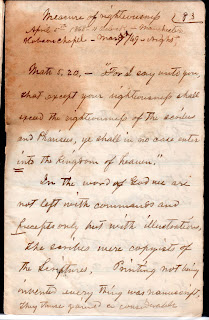 Measure of righteousness [93]
April 5th 1868
chapel - May /69 - night
Matt 5.20, - "For I say unto you,
that except your righteousness shall
exceed the righteousness of the scribes
and Pharisees, ye shall in no case enter
into the kingdom of heaven."
In the word of God we are
not left with commands and
precepts only but with illustrations,
The scribes were copyists of
the Scriptures. Printing not being
invented every thing was manuscript.
They thus gained a considerable